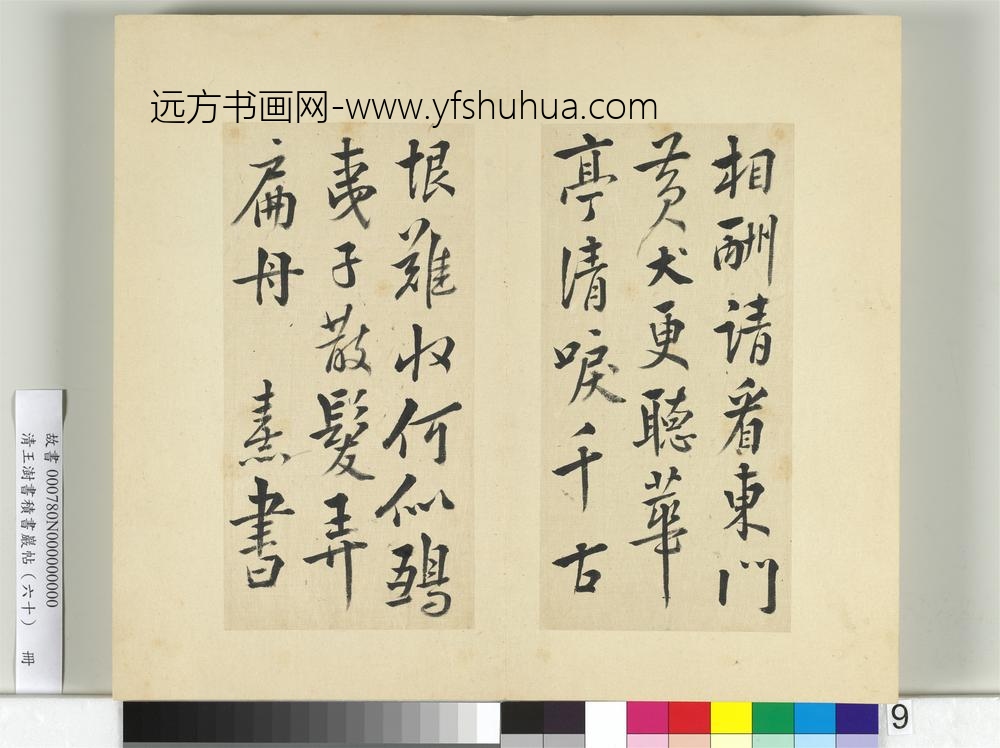 远方书画网-www.yfshuhua.com
相酬請看東門
黄犬更聽華
亭清唳千古
恨難收何似鴟
夷子散髮弄
扁舟 熹書
故書 000780N000000000
清王澍書積書巖帖（六十） 冊
9